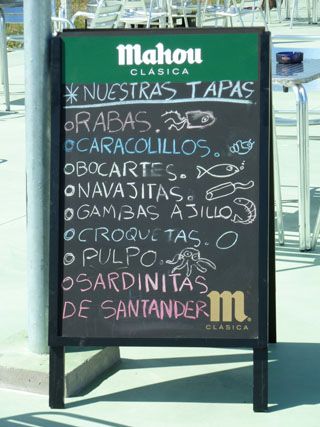 Mahou
CLÁSICA
* NUESTRAS TAPAS
RABAS.
CARACOLILLOS.
BOCARTES.
NAVAJITAS.
GAMBAS AJILLO
CROQUETAS.
PULPO.
SARDINITAS
DE SANTANDER
M.
CLÁSICA